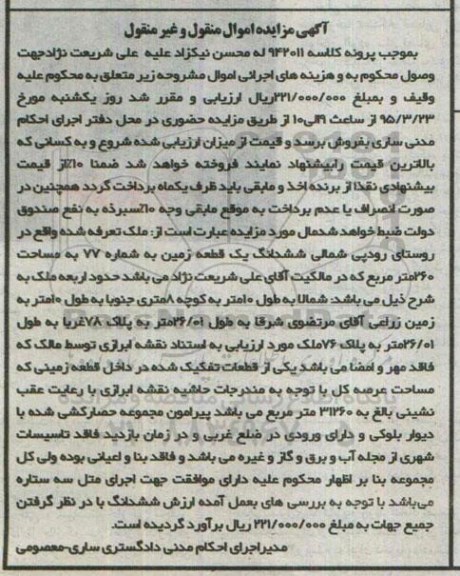 آگهی مزایده اموال منقول و غیر منقول
بموجب پرونه کلاسه ۹۴۲۰۱۱ له محسن نیکزاد علیه علی شریعت نژادجهت
وصول محکوم به و هزینه های اجرائی اموال مشروحه زیر متعلق به محکوم علیه
وقیف و بمبلغ ۲۲۱/۰۰۰/۰۰۰ریال ارزیابی و مقرر شد روز یکشنبه مورخ
۹۵/۳/۲۳ از ساعت ۹الی۱۰ از طریق مزایده حضوری در محل دفتر اجرای احکام
مدنی ساری بفروش برسد و قیمت از میزان ارزیابی شده شروع و به کسانی که
بالاترین قیمت راپیشنهاد نمایند فروخته خواهد شد ضمنا ۱۰٪از قیمت
پیشنهادی نقدا از برنده اخذ و مابقی باید ظرف یکماه پرداخت گردد همچنین در
صورت انصراف یا عدم پرداخت به موقع مابقی وجه ۱۰٪سپرده به نفع صندوق
دولت ضبط خواهد شدمال مورد مزایده عبارت است از: ملک تعرفه شده واقع در
روستای رودپی شمالی ششدانگ یک قطعه زمین به شماره ۷۷ به مساحت
۲۶۰متر مربع که در مالکیت آقای علی شریعت نژاد می باشد حدود اربعه ملک به
شرح ذیل می باشد: شمالا به طول ۱۰متر به کوچه ۸متری جنوبا به طول ۱۰متر به
زمین زراعی آقای مرتضوی شرقا به طول ۲۶/۰۱متر به پلاک ۷۸غربا به طول
۲۶/۰۱متر به پلاک ۷۶ملک مورد ارزیابی به استناد نقشه ابرازی توسط مالک که
فاقد مهر و امضا می باشد یکی از قطعات تفکیک شده در داخل قطعه زمینی که
مساحت عرصه کل با توجه به مندرجات حاشیه نقشه ابرازی با رعایت عقب
نشینی بالغ به ۳۱۲۶۰ متر مربع می باشد پیرامون مجموعه حصارکشی شده با
دیوار بلوکی و دارای ورودی در ضلع غربی و در زمان بازدید فاقد تاسیسات
شهری از مجله آب و برق و گاز و غیره می باشد و فاقد بنا و اعیانی بوده ولی کل
مجموعه بنا بر اظهار محکوم علیه دارای موافقت جهت اجرای متل سه ستاره
می‌باشد با توجه به بررسی های بعمل آمده ارزش ششدانگ با در نظر گرفتن
جمیع جهات به مبلغ ۲۲۱/۰۰۰/۰۰۰ ریال برآورد گردیده است.
مدیراجرای احکام مدنی دادگستری ساری-معصومی